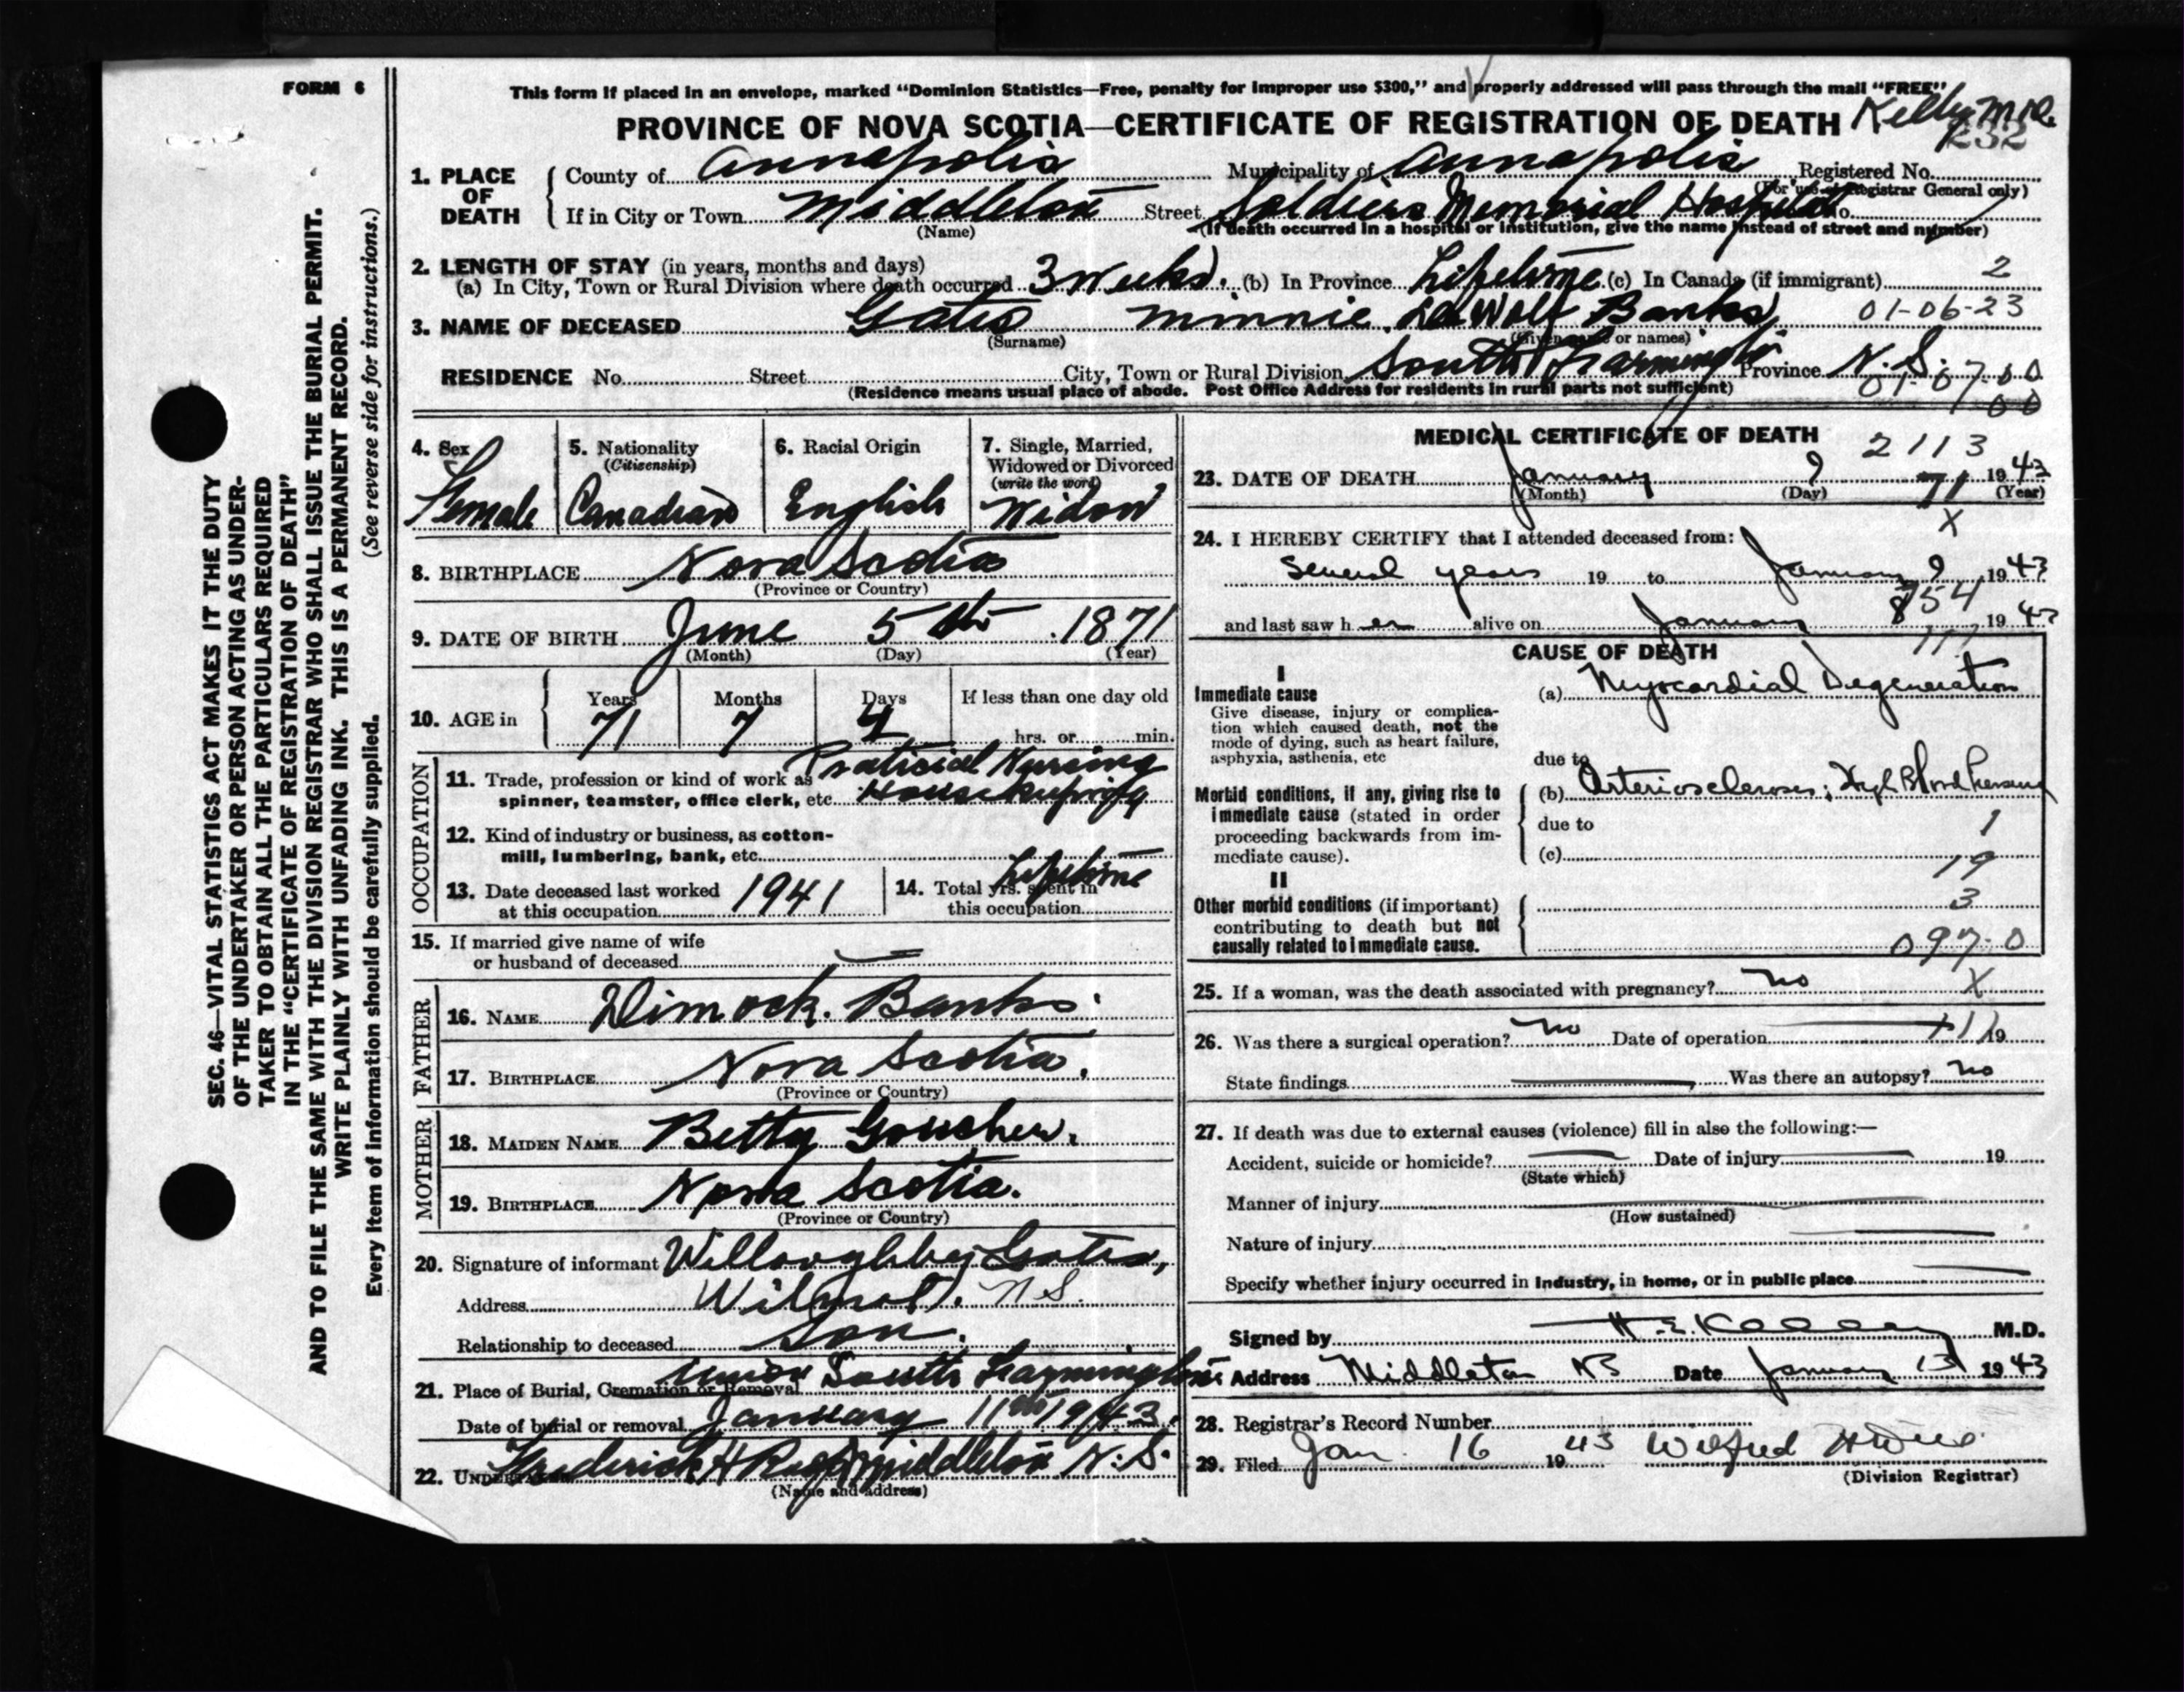 FORM 6
This form if placed in an envelope, marked "Dominion Statistics—Free, penalty for improper use $300," and properly addressed will pass through the mail "FREE"
PROVINCE OF NOVA SCOTIA—CERTIFICATE OF REGISTRATION OF DEATH
232
1. PLACE OF DEATH
County of Annapolis Municipality of Annapolis Registered No.
(For use of Registrar General only)
If in City or Town Middleton Street Soldiers Memorial Hospital No.
(Name) (If death occurred in a hospital or institution, give the name instead of street and number)
2. LENGTH OF STAY (in years, months and days)
(a) In City, Town or Rural Division where death occurred 3 weeks. (b) In Province Lifetime (c) In Canada (if immigrant) 2
3. NAME OF DECEASED Gates Minnie DeWolf Banks 01-06-23
(Surname) (Given name or names)
RESIDENCE No. Street City, Town or Rural Division South Farmington Province N.S.
(Residence means usual place of abode. Post Office Address for residents in rural parts not sufficient)
4. Sex Female
5. Nationality (Citizenship) Canadian
6. Racial Origin English
7. Single, Married, Widowed or Divorced (write the word) Widow
8. BIRTHPLACE Nova Scotia
(Province or Country)
9. DATE OF BIRTH June 5th 1871
(Month) (Day) (Year)
10. AGE in Years 71 Months 7 Days 4 If less than one day old hrs. or min.
OCCUPATION
11. Trade, profession or kind of work as Pratical Nursing
spinner, teamster, office clerk, etc. Housekeeping
12. Kind of industry or business, as cotton-
mill, lumbering, bank, etc.
13. Date deceased last worked at this occupation 1941
14. Total yrs. spent in this occupation Lifetime
15. If married give name of wife
or husband of deceased —
FATHER
16. NAME Dimock. Banks.
17. BIRTHPLACE Nova Scotia.
(Province or Country)
MOTHER
18. MAIDEN NAME Betty Goucher.
19. BIRTHPLACE Nova Scotia.
(Province or Country)
20. Signature of informant Willoughby Gates,
Address Wilmot. N.S.
Relationship to deceased Son.
21. Place of Burial, Cremation or Removal Union South Farmington
Date of burial or removal January 11th 1943.
22. UNDERTAKER Frederick H Middleton N.S.
(Name and address)
MEDICAL CERTIFICATE OF DEATH
2113
23. DATE OF DEATH January 9 71 1943
(Month) (Day) (Year)
X
24. I HEREBY CERTIFY that I attended deceased from:
Several years 19 to January 9 1943
754
and last saw her alive on January 8 1943
CAUSE OF DEATH
I
Immediate cause
Give disease, injury or complica-
tion which caused death, not the
mode of dying, such as heart failure,
asphyxia, asthenia, etc
(a) Myocardial Degeneration
due to
Morbid conditions, if any, giving rise to
immediate cause (stated in order
proceeding backwards from im-
mediate cause).
(b) Arteriosclerosis; High Blood Pressure
due to 1
(c) 19
II
Other morbid conditions (if important)
contributing to death but not
causally related to immediate cause.
3
097.0
25. If a woman, was the death associated with pregnancy? No X
26. Was there a surgical operation? No Date of operation 19
State findings Was there an autopsy? No
27. If death was due to external causes (violence) fill in also the following:—
Accident, suicide or homicide? Date of injury 19
(State which)
Manner of injury
(How sustained)
Nature of injury
Specify whether injury occurred in industry, in home, or in public place
Signed by H.E. Kelley M.D.
Address Middleton NS Date January 13 1943
28. Registrar's Record Number
29. Filed Jan. 16 1943 Wilfred
(Division Registrar)
SEC. 46—VITAL STATISTICS ACT MAKES IT THE DUTY
OF THE UNDERTAKER OR PERSON ACTING AS UNDER-
TAKER TO OBTAIN ALL THE PARTICULARS REQUIRED
IN THE "CERTIFICATE OF REGISTRATION OF DEATH"
AND TO FILE THE SAME WITH THE DIVISION REGISTRAR WHO SHALL ISSUE THE BURIAL PERMIT.
WRITE PLAINLY WITH UNFADING INK. THIS IS A PERMANENT RECORD.
Every item of information should be carefully supplied. (See reverse side for instructions.)